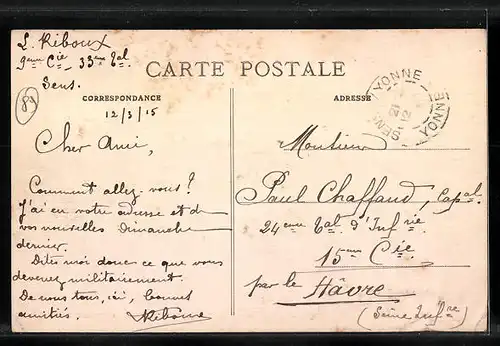 L. Riboux
9eme Cie 33eme Bal
Sens.
89
CARTE POSTALE
CORRESPONDANCE
ADRESSE
SENS YONNE
YONNE
12/3/15
Cher Ami,
Comment allez-vous?
J'ai eu votre adresse et de
vos nouvelles Dimanche
dernier.
Dites moi donc ce que vous
devenez militairement.
De nous tous, ici, bonnes
amitiés.
Monsieur
Paul Chaffaud, Capal.
24eme Bal d'Infrie
15eme Cie
par le Hâvre
(Seine Infre)